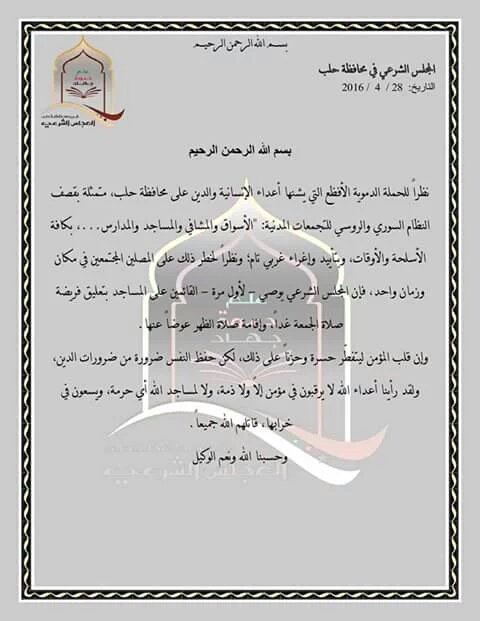 بسم الله الرحمن الرحيم
المجلس الشرعي في محافظة حلب
التاريخ: 28 / 4 / 2016
علم
دعوة
جهاد
في محافظة حلب
المجلس الشرعي
بسم الله الرحمن الرحيم
نظراً للحملة الدموية الأفظع التي يشنها أعداء الإنسانية والدين على محافظة حلب، متمثلة بقصف
النظام السوري والروسي للتجمعات المدنية: "الأسواق والمشافي والمساجد والمدارس...، بكافة
الأسلحة والأوقات، وبتأييد وإغراء غربي تام؛ ونظراً لخطر ذلك على المصلين المجتمعين في مكان
وزمان واحد، فإن المجلس الشرعي يوصي – لأول مرة – القائمين على المساجد بتعليق فريضة
صلاة الجمعة غداً، وإقامة صلاة الظهر عوضاً عنها .
وإن قلب المؤمن ليتفطّر حسرة وحزناً على ذلك، لكن حفظ النفس ضرورة من ضرورات الدين،
ولقد رأينا أعداء الله لا يرقبون في مؤمن إلاً ولا ذمة، ولا لمساجد الله أي حرمة، ويسعون في
خرابها، قاتلهم الله جميعاً .
وحسبنا الله ونعم الوكيل
علم
دعوة
جهاد
في محافظة حلب
المجلس الشرعي